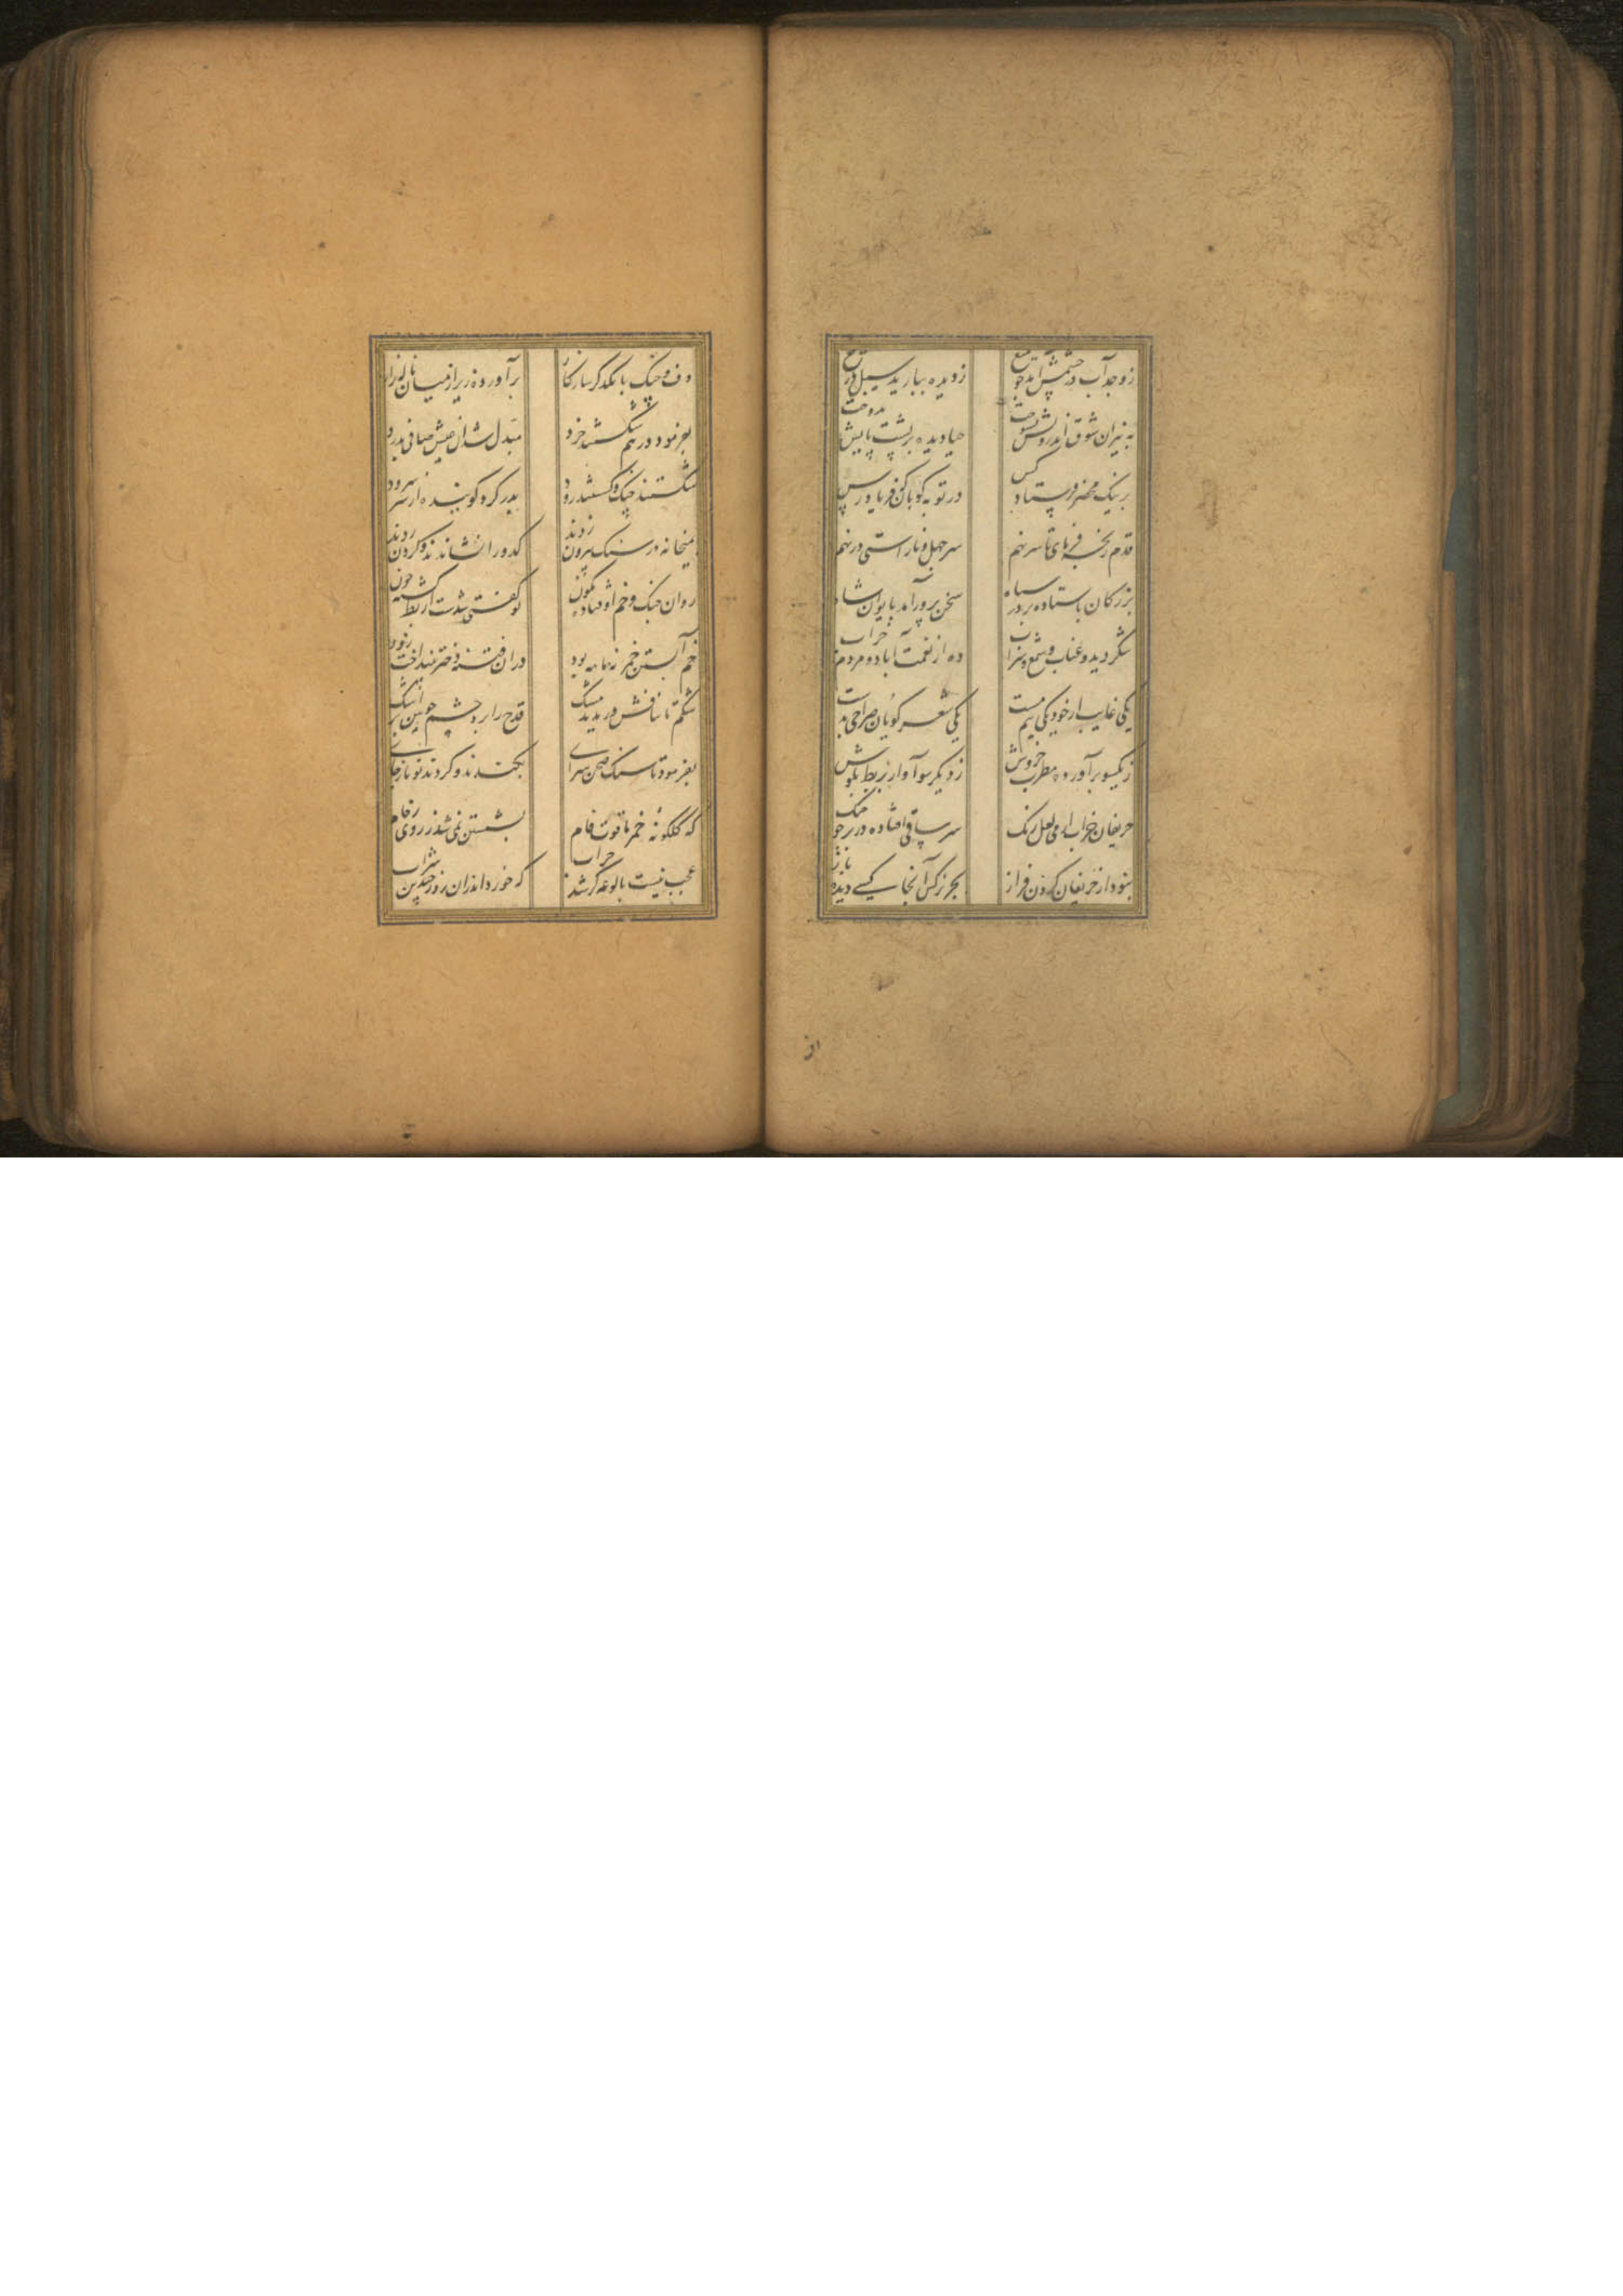 ز وجد آب در چشمش آمد چو میغ
ز دیده ببارید سیل دریغ
به نیران شوق اندرونش بسوخت
حیا دیده بر پشت پایش بدوخت
بر نیک محضر فرستاد کس
در توبه کوبان که فریاد رس
قدم رنجه فرمای تا سر نهم
سر جهل و ناراستی در نهم
بزرکان باستاده بر در سپاه
سخن پرور آمد بایوان شاه
شکر دید و عناب و شمع و شراب
ده از نعمت آباد و مردم خراب
یکی غایب از خود یکی نیم مست
یکی شعر کویان صراحی بدست
ز یکسو برآورده مطرب خروش
ز دیکر سو آواز بربط بکوش
حریفان خراب از می لعل رنک
سر ساقی افتاده در بر چو چنک
نبود از حریفان کردن فراز
بجز نرکس آنجا کسی دیده باز
دف و چنک با یکدکر سازکار
برآورده زیر از میان ناله زار
بفرمود در هم شکستند خرد
مبدل شد آن عیش صافی بدرد
شکستند چنک و کسستند رود
بدر کرد کوینده از سر سرود
بمیخانه در سنک بر دن زدند
کدو را نشاندند و کردن زدند
روان چنک و خم اوفتاده نکون
تو کفتی شدست از بط کشته خون
خم آبستن خمر نه ماهه بود
دران فتنه دختر بینداخت زود
شکم تا بنافش دریدند مشک
قدح را برو چشم خونین پر اشک
بفرمود تا سنک صحن سرای
بکندند و کردند نو باز جای
که کلکونهٔ خمر یاقوت فام
بشستن نمی شد ز روی رخام
عجب نیست بالوعه کر شد خراب
که خورد اندران روز چندین شراب